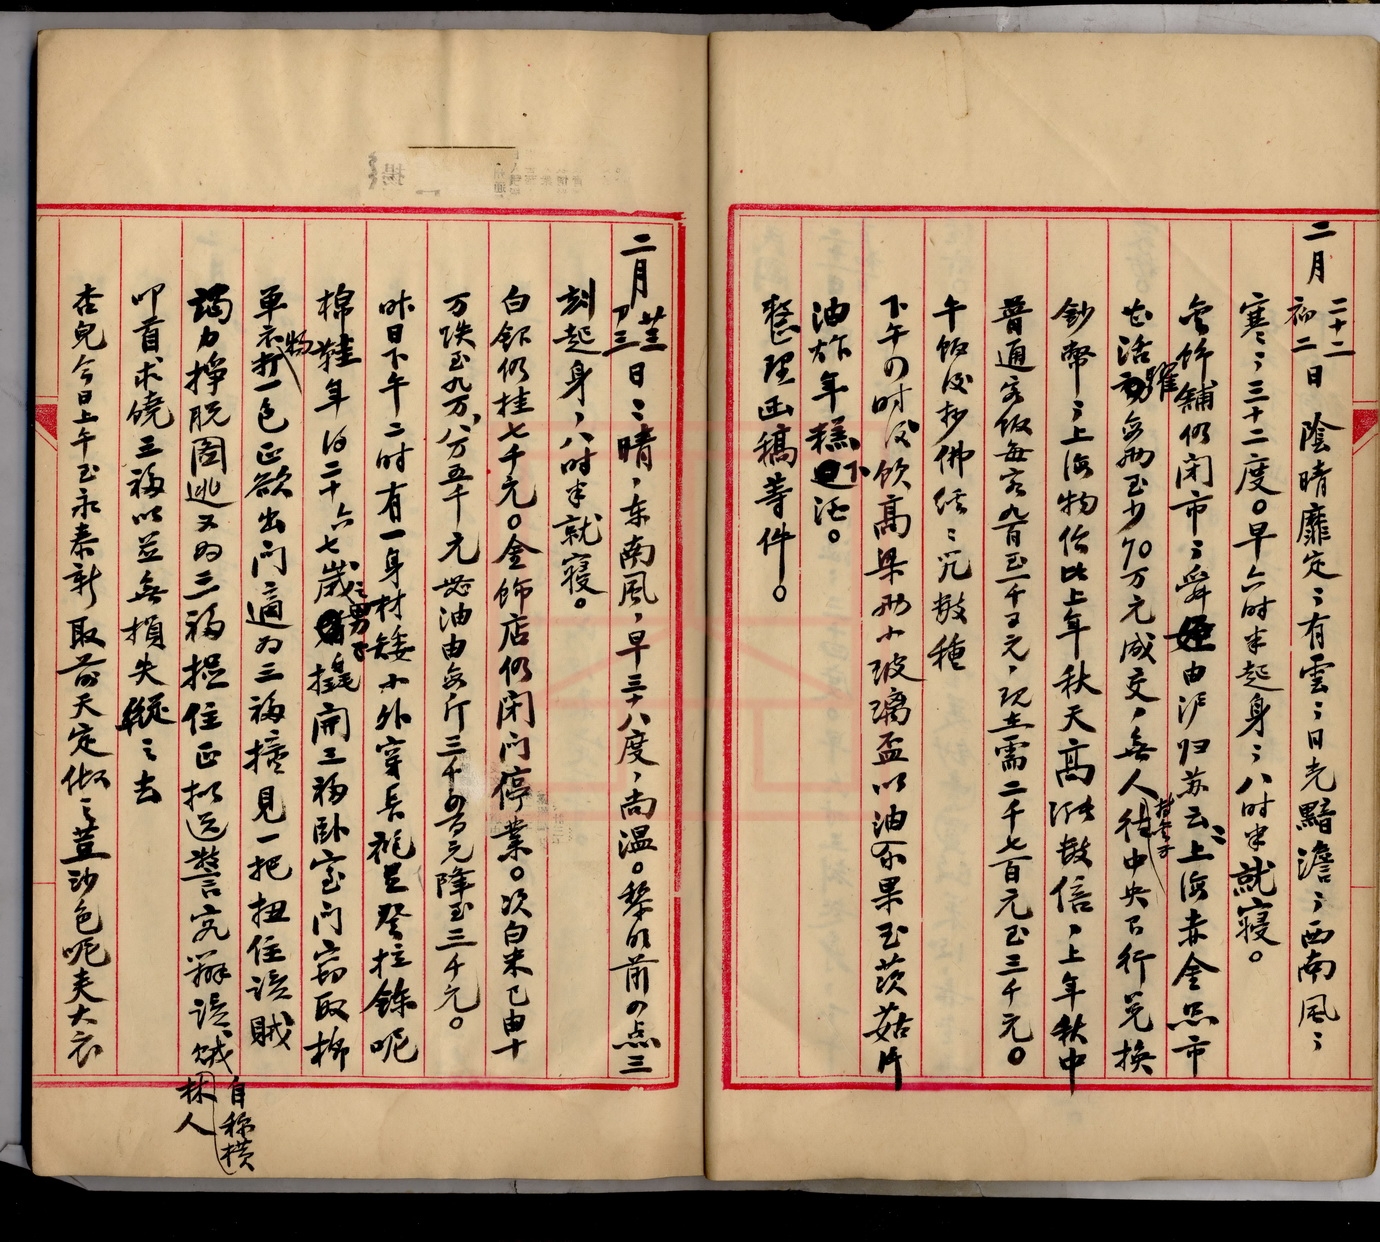 二月二十二初二日 陰晴靡定ミ有雲ミ日光黯澹ミ西南風ミ
寒ミ三十二度。早六时半起身ミ八时半就寝。
金飾舖仍闭市ミ舜姪由沪归苏云ミ上海赤金黑市
甚活躍每两至少70万元成交，無人持金子往中央银行兑换
鈔幣ミ上海物价比上年秋天高涨数倍，上年秋中
普通客饭每客九百至一千元，现在需二千七百元至三千元。
午饭后抄佛经ミ咒数種
下午四时后饮高粱两小玻璃盃以油汆果玉茨菇片
油炸年糕下酒。
整理函稿等件。
二月廿三初三日ミ晴，东南風，早三十八度，尚温。黎明前四点三
刻起身，八时半就寝。
白銀仍挂七千元。金飾店仍闭门停業。次白米已由十
万跌至九万，八万五千元 油由每斤三千四百元降至三千元。
昨日下午二时有一身材矮小外穿長袍足登拉鍊呢
棉鞋年约二十六七歲之男子撬開三福卧室门窃取棉
單衣物一包正欲出门適为三福撞見一把扭住該賊
竭力掙脱图逃又为三福捉住正拟送警究辦該贼自称横林人
叩首求饒三福以並無損失縱之去
杏兒今日上午至永泰新取前天定做之荳沙色呢夹大衣